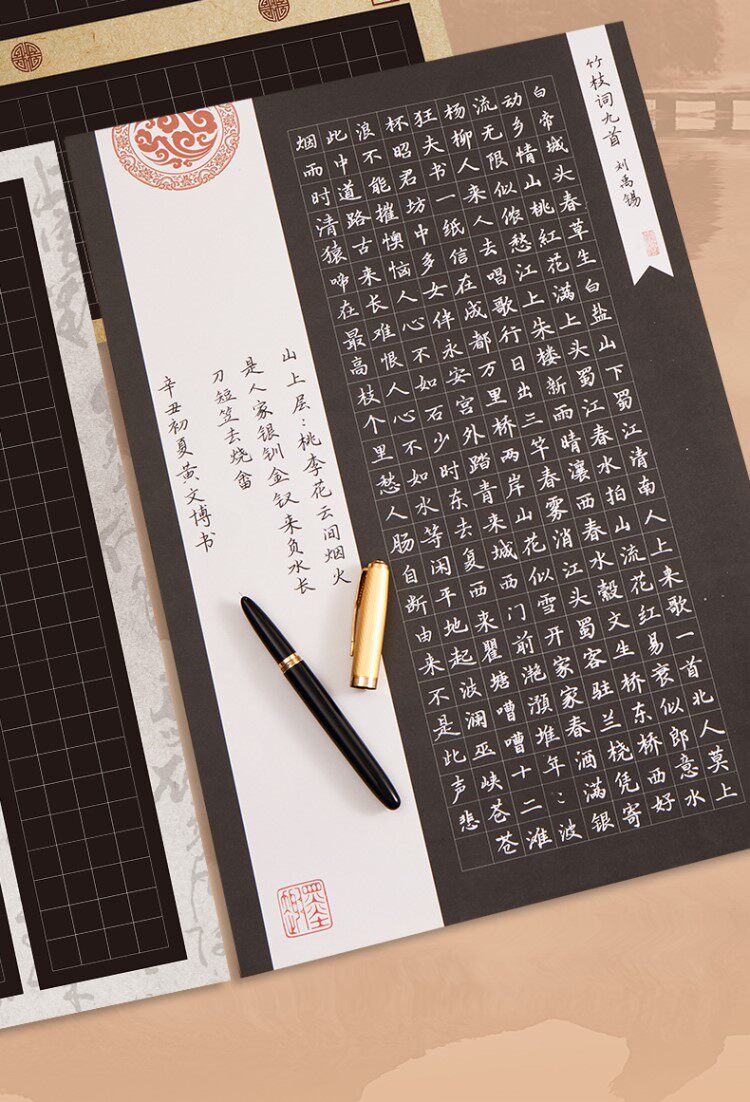 竹枝词九首 刘禹锡
白帝城头春草生白盐山下蜀江清南人上来歌一首北人莫上
动乡情山桃紅花满上头蜀江春水拍山流花红易衰似郎意水
流无限似侬愁江上朱楼新雨晴瀼西春水縠文生桥东桥西好
杨柳人来人去唱歌行日出三竿春雾消江头蜀客驻兰桡凭寄
狂夫书一纸信在成都万里桥两岸山花似雪开家家春酒满银
杯昭君坊中多女伴永安宫外踏青来城西门前滟滪堆年：波
浪不能摧懊恼人心不如石少时东去复西来瞿塘嘈嘈十二滩
此中道路古来长难恨人心不如水等闲平地起波澜巫峡苍苍
烟雨时清猿啼在最高枝个里愁人肠自断由来不是此声悲
山上层：桃李花云间烟火
是人家银钏金钗来负水长
刀短笠去烧畲
辛丑初夏黄文博书